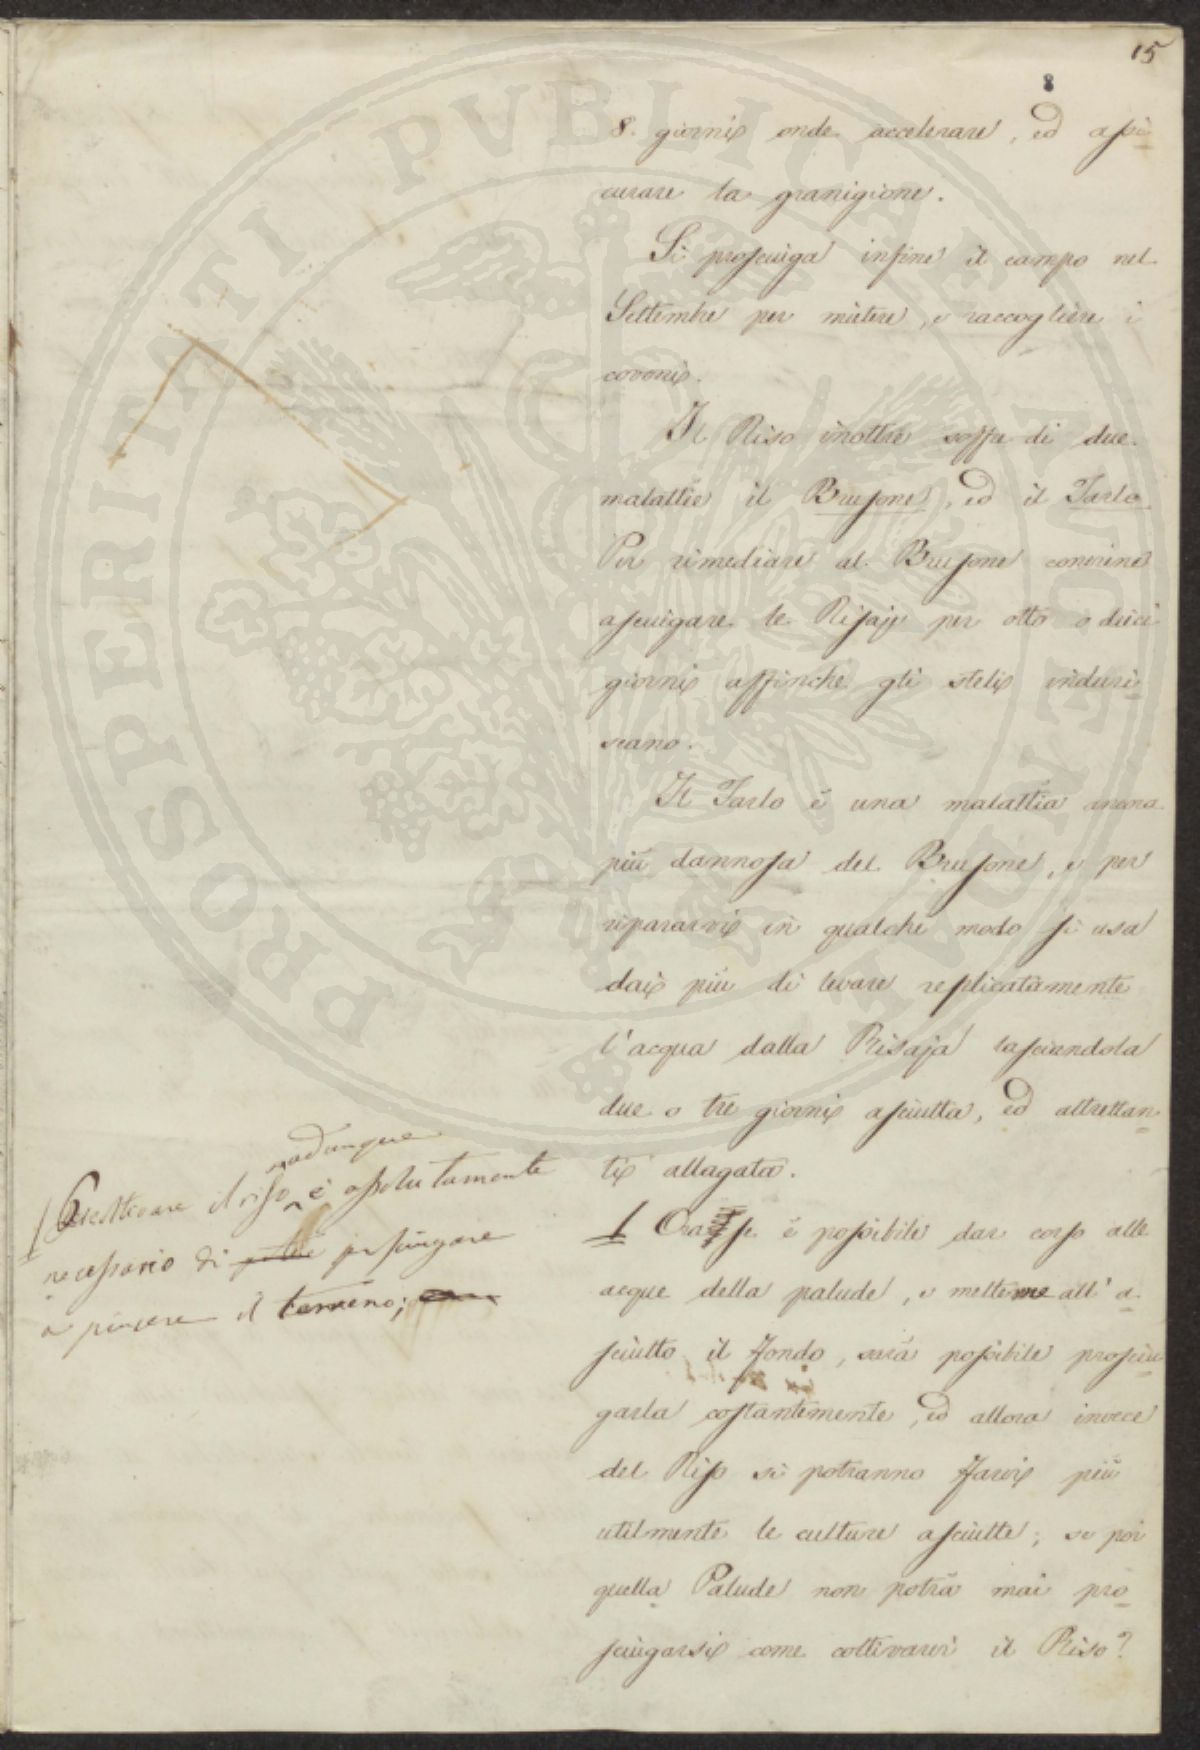 15
8
8. giorni onde accelerare, ed assi-
curare la granigione.
Si prosciuga infine il campo nel
Settembre per mietere, e raccogliere i
covoni.
Il Riso inoltre soffre di due
malattie il Brusone, ed il Tarlo
Per rimediare al Brusone conviene
asciugare le Risaje per otto o dieci
giorni affinchè gli steli induri-
scano.
Il Tarlo è una malattia ancora
più dannosa del Brusone, e per
ripararvi in qualche modo si usa
dai più di levare replicatamente
l'acqua dalla Risaja lasciandola
due o tre giorni asciutta, ed altrettan-
ti allagata.
Ora se è possibile dar corso alle
acque della palude, e metterne all'a-
sciutto il fondo, sarà possibile prosciu-
garla costantemente, ed allora invece
del Riso si potranno farvi più
utilmente le culture asciutte; se poi
quella Palude non potrà mai pro-
sciugarsi come coltivarvi il Riso?
adunque
coltivare il riso è assolutamente
necessario di prosciugare
a piacere il terreno;
PROSPERITATI PUBLICAE AUGENDAE